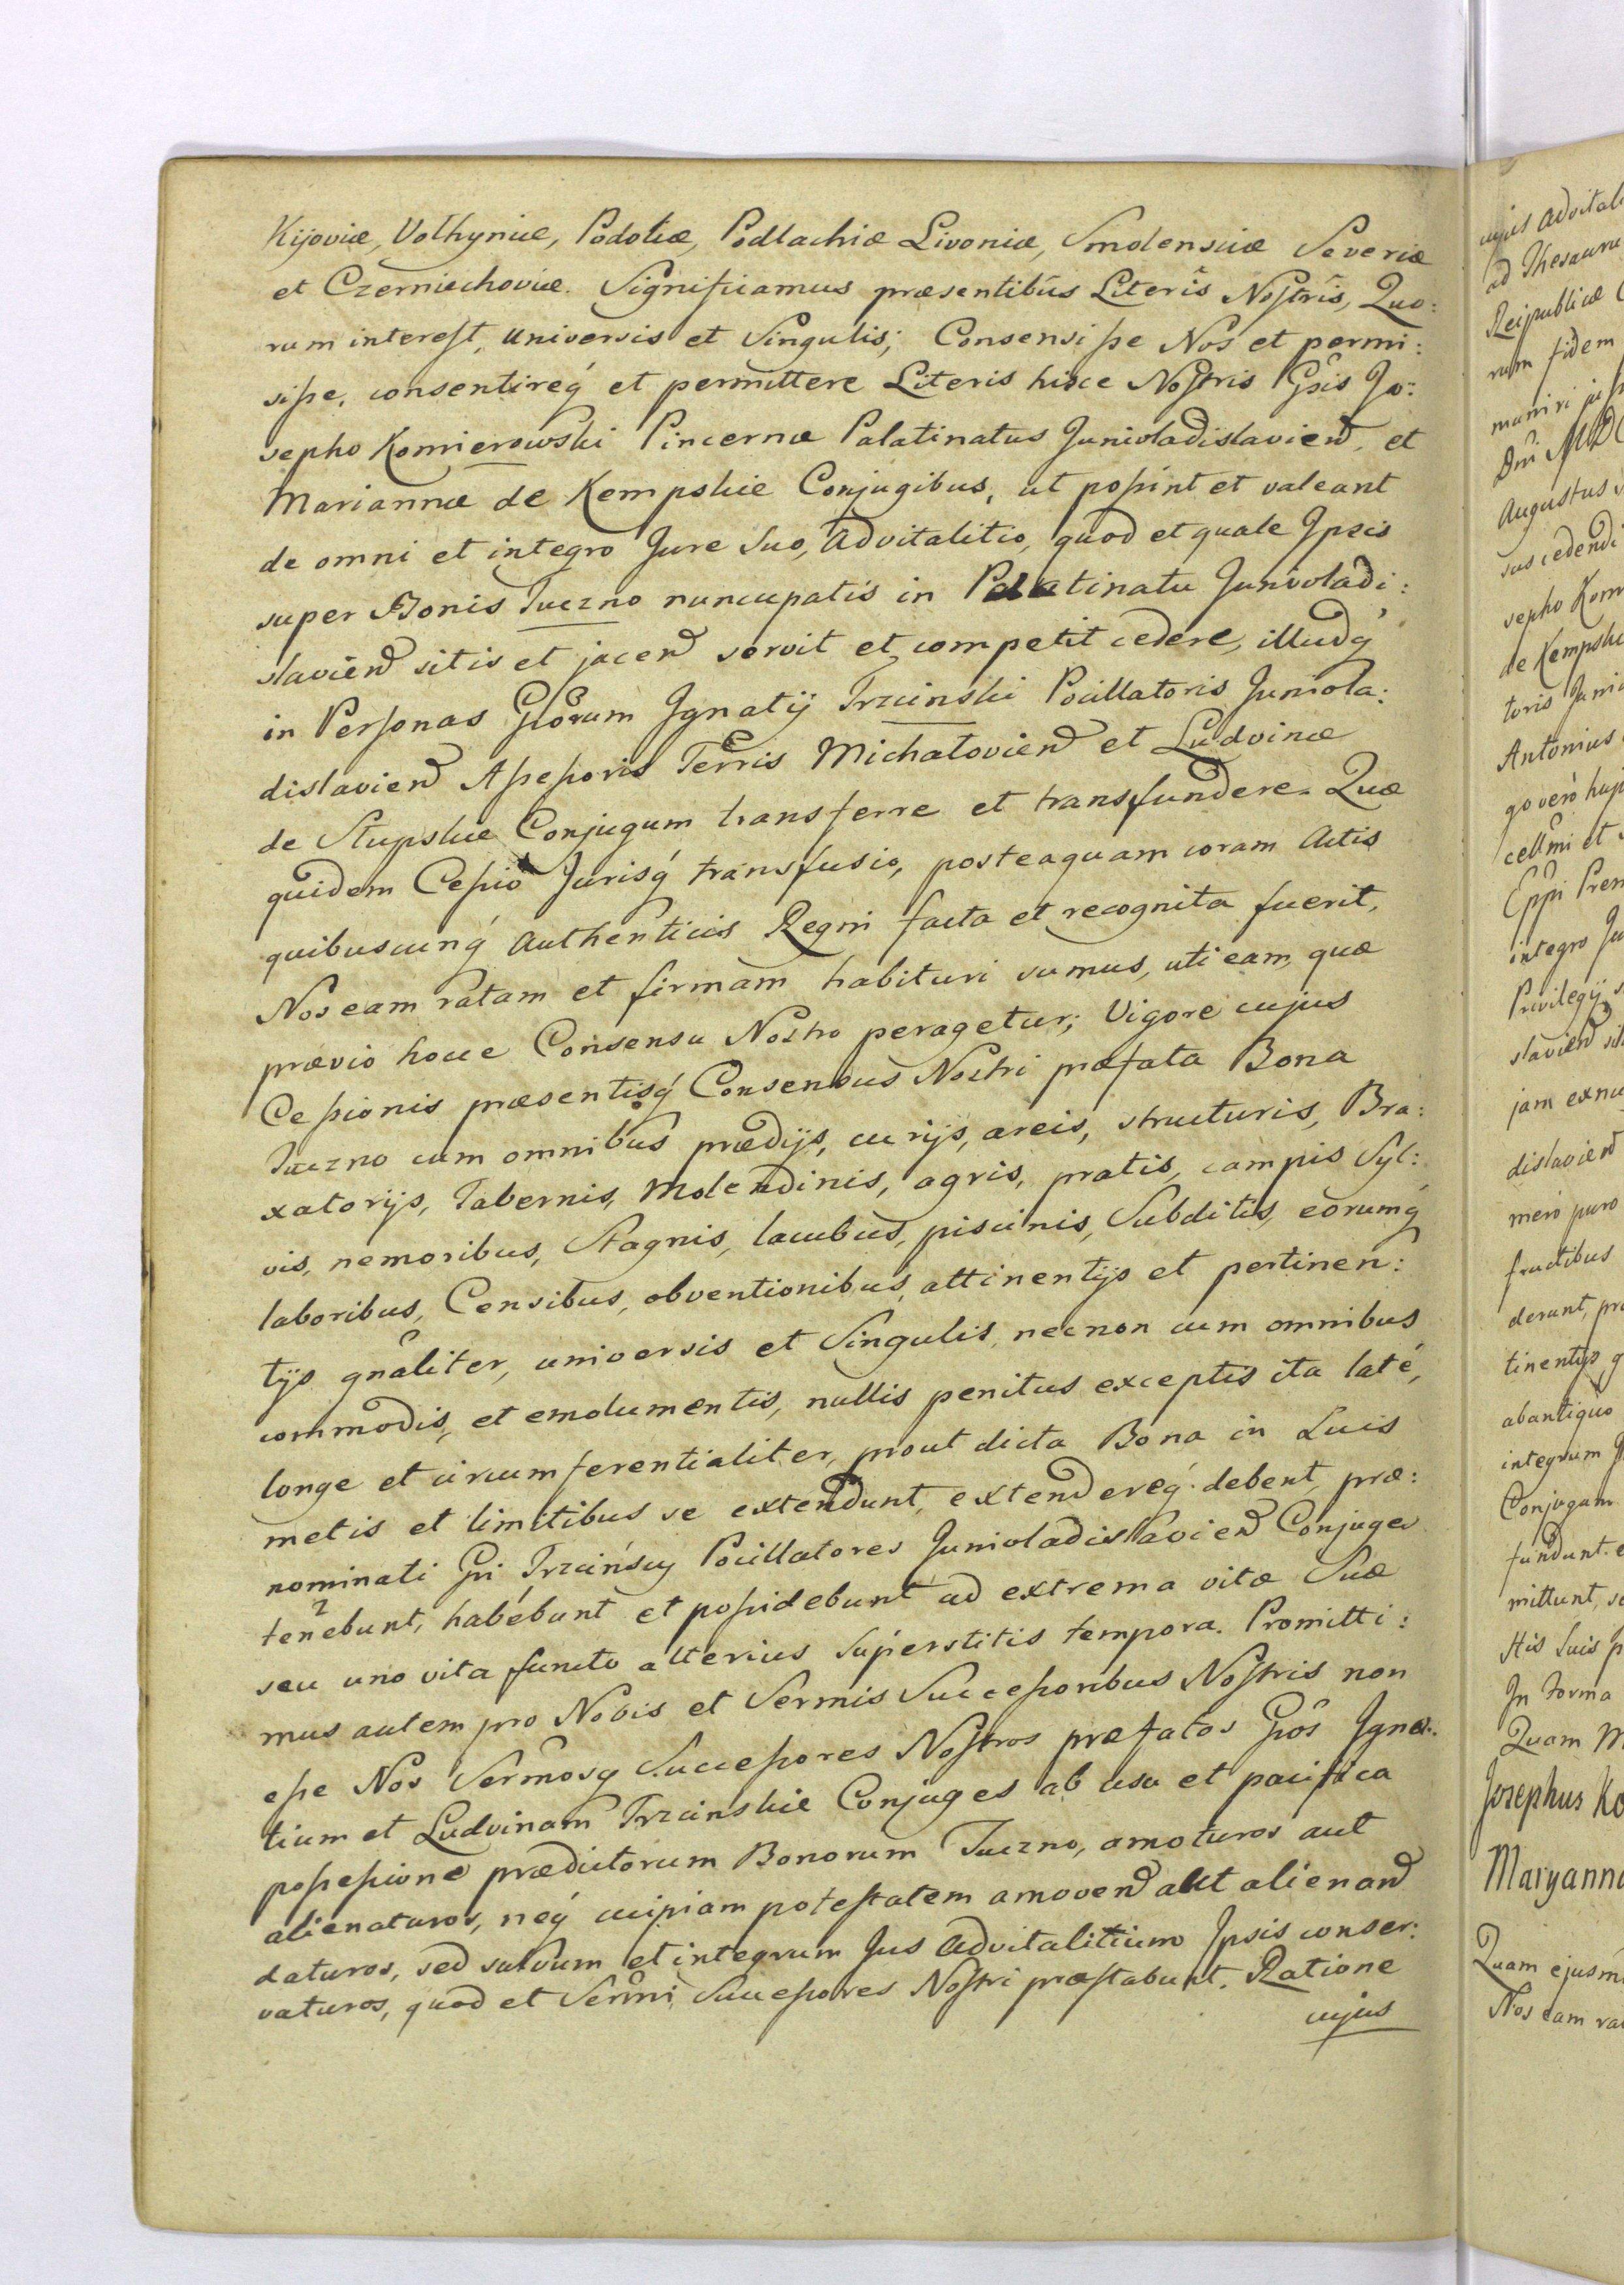 Kijoviæ, Volhyniæ, Podoliæ, Podlachiæ Livoniæ, Smolensciæ Severiæ
et Czerniechoviæ. Significamus præsentibus Literis Nostris, Quo:
rum interest, universis et Singulis; Consensisse Nos et permi:
sisse, consentireq́ et permittere Literis hisce Nostris Gsis Jo:
sepho Komierowski Pincernæ Palatinatus Junivladislavien̄. et
Mariannæ de Kempskie Conjugibus, ut possint et valeant
de omni et integro Jure Suo, Advitalitio, quod et quale Ipsis
super Bonis Tuczno nuncupatis in Palatinatu Junivladi:
slavien̄ sitis et jacen̄ servit et competit cedere, illudq́
in Personas Gsorum Ignatij Trzcinski Pocillatoris Junivla:
dislavien̄ Assessoris Terris Michalovien̄ et Ludvinæ
de Slupskie Conjugum transferre et transfundere. Quæ
quidem Cessio Jurisq́ transfusio, posteaquam coram Actis
quibuscunq́ Authenticis Regni facta et recognita fuerit,
Nos eam ratam et firmam habituri sumus, uti eam, quæ
prævio hocce Consensu Nostro peragetur; Vigore cujus
Cessionis præsentisq́ Consensus Nostri præfata Bona
Tuczno cum omnibus prædijs, curijs, areis, structuris, Bra:
xatorijs, Tabernis, Molendinis, agris, pratis, campis Syl:
vis, nemoribus, Stagnis, lacubus, piscinis, Subditis, eorumq́
laboribus, Censibus, obventionibus, attinentijs et pertinen:
tijs gnāliter, universis et Singulis, necnon cum omnibus
commodis, et emolumentis, nullis penitus exceptis ita laté,
longe et circumferentialiter, prout dicta Bona in Suis
metis et limitibus se extendunt, extendereq́ debent, præ:
nominati Gsi Trzcińscy Pocillatores Junivladislavien̄ Conjuges
tenebunt, habebunt et possidebunt ad extrema vitæ Suæ
seu uno vita functo alterius Superstitis tempora. Promitti:
mus autem pro Nobis et Sermis Successoribus Nostris non
esse Nos Sermosq Successores Nostros præfatos Gsos Igna:
tium et Ludvinam Trzcinskie Conjuges ab usu et pacifica
possessione prædictorum Bonorum Tuczno, amoturos aut
alienaturos, neq́ cuipiam potestatem amoven̄ aut alienan̄
daturos, sed salvum et integrum Jus Advitalitium Ipsis conser:
vaturos, quod et Sermi Successores Nostri præstabunt. Ratione
cujus
ad Thesauru
Reipublicæ
rum fidem
muniri
Augustus
suscedendi
sepho Kom
de Kempski
toris Juni
Antonius
go veró huj
cellmi et
Eppi Prem
integro Ju
Privilegij
slavien̄
jam exnu
dislavien̄
meró puro
fructibus
derunt, pr
tinentijs g
abantiquo
integrum
Conjugum
fundunt. e
mittunt, s
His Suis p
In forma
Quam M
Josephus Ko
Maryanna
Quam ejusm
Nos eam ra